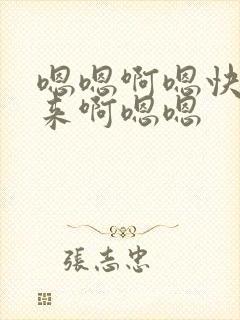 嗯嗯啊嗯快
来啊嗯嗯
張志忠